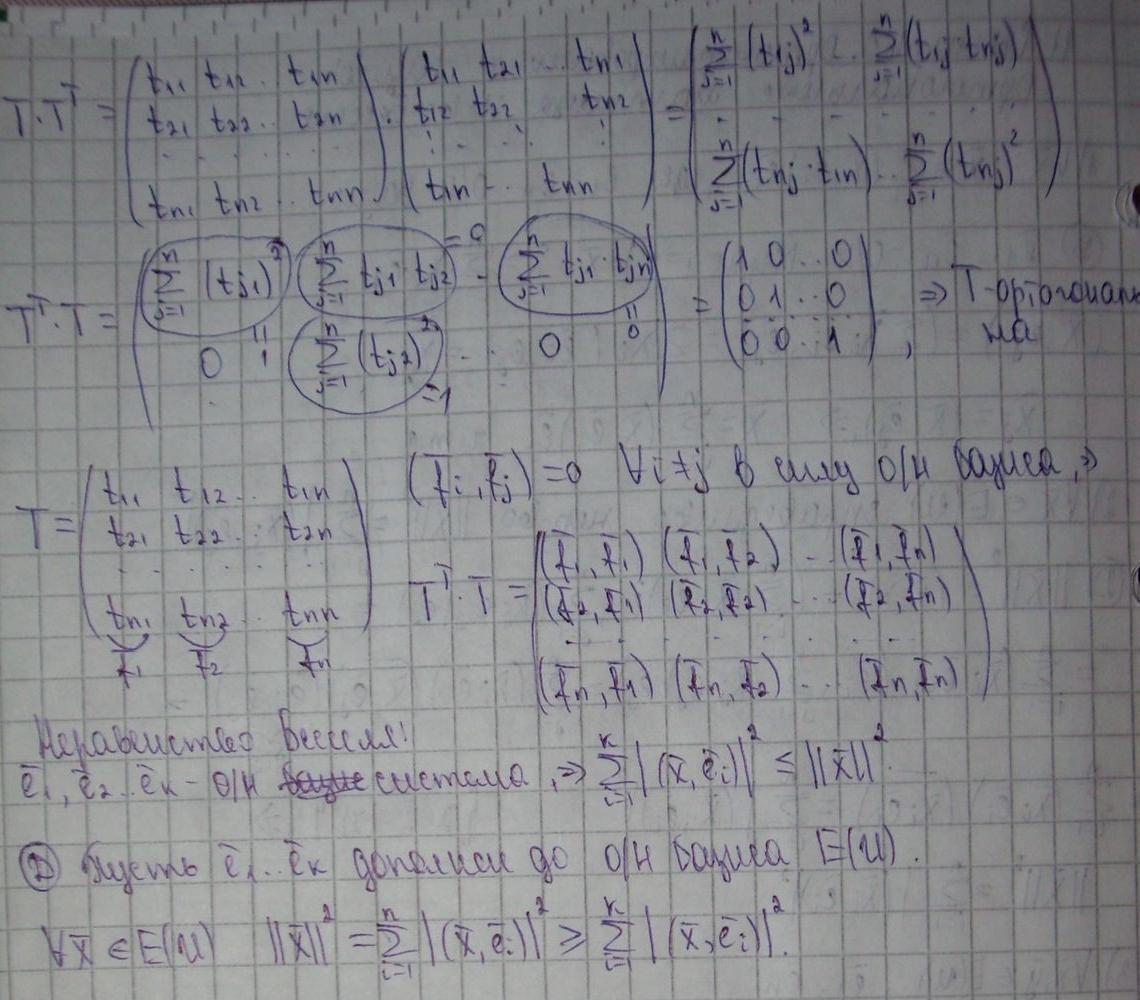 T·Tᵀ = (t₁₁ t₁₂ .. t₁ₙ; t₂₁ t₂₂ .. t₂ₙ; . . . . . .; tₙ₁ tₙ₂ .. tₙₙ) · (t₁₁ t₂₁ .. tₙ₁; t₁₂ t₂₂ tₙ₂; ⋮ ⋮ ⋮; t₁ₙ .. tₙₙ) = (∑ⱼ₌₁ⁿ (t₁ⱼ)² .. ∑ⱼ₌₁ⁿ (t₁ⱼ·tₙⱼ); . . . . . .; ∑ⱼ₌₁ⁿ (tₙⱼ·t₁ₙ) .. ∑ⱼ₌₁ⁿ (tₙⱼ)²)
Tᵀ·T = (∑ⱼ₌₁ⁿ (tⱼ₁)² = 1 ∑ⱼ₌₁ⁿ tⱼ₁·tⱼ₂ = 0 .. ∑ⱼ₌₁ⁿ tⱼ₁·tⱼₙ = 0; 0 ∑ⱼ₌₁ⁿ (tⱼ₂)² = 1 .. 0) = (1 0 .. 0; 0 1 .. 0; 0 0 .. 1), ⇒ T-ортогональ
на
T = (t₁₁ t₁₂ .. t₁ₙ; t₂₁ t₂₂ .. t₂ₙ; . . . . . .; tₙ₁ tₙ₂ .. tₙₙ) f̄₁ f̄₂ f̄ₙ
(f̄ᵢ, f̄ⱼ) = 0 ∀i≠j в силу о/н базиса, ⇒
Tᵀ·T = ((f̄₁, f̄₁) (f̄₁, f̄₂) .. (f̄₁, f̄ₙ); (f̄₂, f̄₁) (f̄₂, f̄₂) ... (f̄₂, f̄ₙ); . . . . . .; (f̄ₙ, f̄₁) (f̄ₙ, f̄₂) ... (f̄ₙ, f̄ₙ))
Неравенство Бесселя:
ē₁, ē₂ .. ēₖ - о/н система, ⇒ ∑ᵢ₌₁ᵏ |(x̄, ēᵢ)|² ≤ ||x̄||².
Ⓓ Пусть ē₁ .. ēₖ дополним до о/н базиса E(U).
∀x̄ ∈ E(U) ||x̄||² = ∑ᵢ₌₁ⁿ |(x̄, ēᵢ)|² ≥ ∑ᵢ₌₁ᵏ |(x̄, ēᵢ)|².